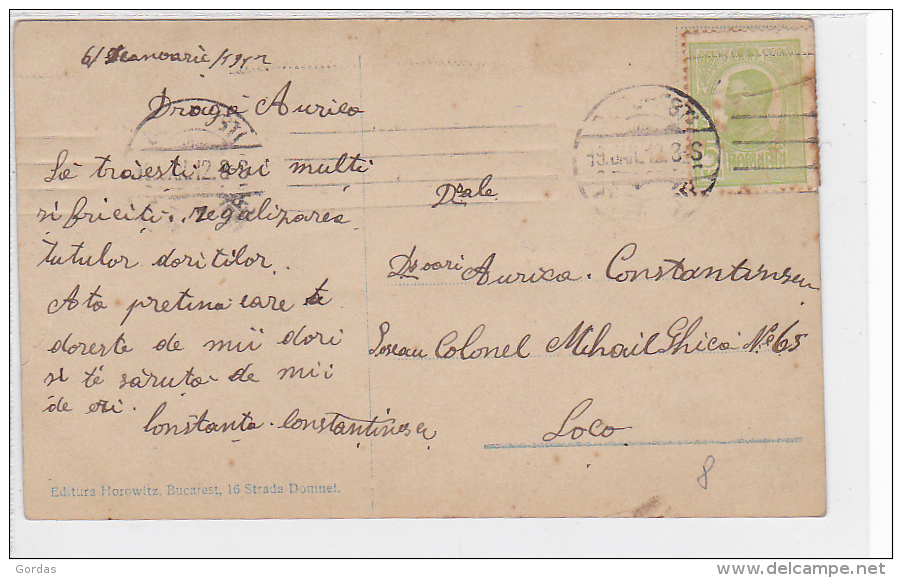 6/ Ieanuarie/1912
Draga Aurica
Să trăesti ani multi
si fericiti. regalizarea
tutulor doritilor.
A ta pretina care te
doreste de mii dori
si te saruta de mii
de ori.
Constanta. Constantinescu
Editura Horowitz, Bucarest, 16 Strada Domnei.
19. JAN. 12. 8-S
ROMANIA
5
Dsale
Dsoari Aurica. Constantinescu
Soseau Colonel Mihail Ghica No 65
Loco
8
Gordas
www.delcampe.net